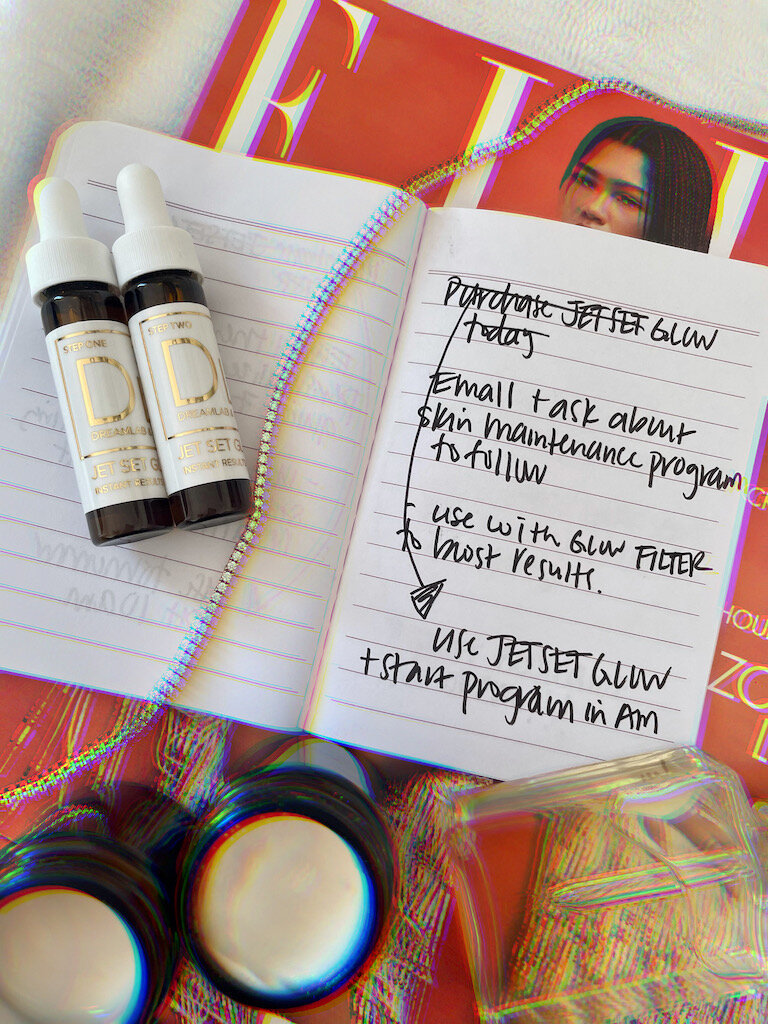 STEP ONE
D
DREAMLAB
JET SET G
INSTANT RESULT
STEP TWO
D
DREAMLAB
JET SET G
INSTANT RESULT
Purchase JETSET GLOW
today
Email + ask about
skin maintenance program
to follow
- use with GLOW FILTER
to boost results.
use JETSET GLOW
+ start program in AM
HOU
ZO